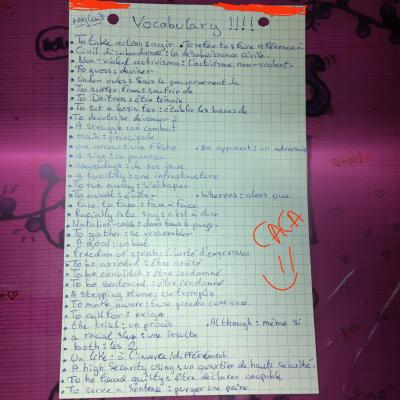 Anglais Vocabulary !!!!
To take action: agir • To refer to: faire référence à
Civil disobedience: la désobéissance civile
Non-violent activism: l'activisme non-violent
To guess: deviner
Under rules: sous le gouvernement de
To suffer from: souffrir de
être témoin
To set a basis for: établir les bases de
To devote
A struggle: un combat
main: principale
an arrow: une flèche • An opponent: un adversaire
a sign: un panneau
nowadays: de nos jours
a facility: une infrastructure
To run away: s'échaper
To avoid: éviter • Whereas: alors que
Face to face: face à face
c'est à dire
Nation-wide: dans tout le pays
To gather: se rassembler
A goal: un but
Freedom of speech: liberté d'expression
To be arrested: être arrêté
être condamné
To be sentenced: être condamné
A stepping stone: un tremplin
To make aware: faire prendre conscience
To call for: exiger
the trial: un procès • Although: même si
a racial slur: une insulte
both: les 2
Un like: à l'inverse/différemment
A high security wing: un quartier de haute sécurité
To be found guilty: être déclarer coupable
To serve a sentence: purger une peine
CACA